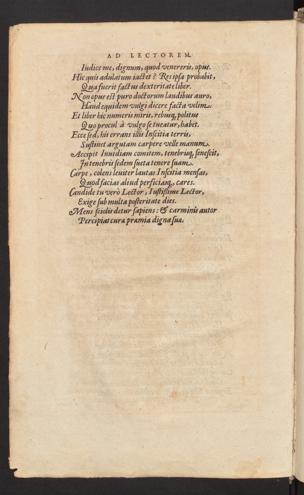 AD LECTOREM.
Iudice me, dignum, quod venereris, opus.
Hic quis adulatum iactet? Res ipsa probabit,
Qua fuerit factus dexteritate liber.
Non opus est puro doctorum laudibus auro,
Haud equidem vulgi dicere facta velim.
Et liber hic numeris miris, rebusq, politus
Quo procul à vulgo se tueatur, habet.
Ecce sed, his errans illis Inscitia terris,
Sustinet argutam carpere velle manum.
Accipit Inuidiam comitem, tenebrisq, senescit,
In tenebris sedem sueta tenere suam.
Carpe, colens leuiter lautas Inscitia mensas,
Quod facias aliud perficiasq, cares.
Candide tu verò Lector, Iustissime Lector,
Exige sub multa posteritate dies.
Mens scidis detur sapiens: & carminis autor
Percipiat cura pramia digna sua.